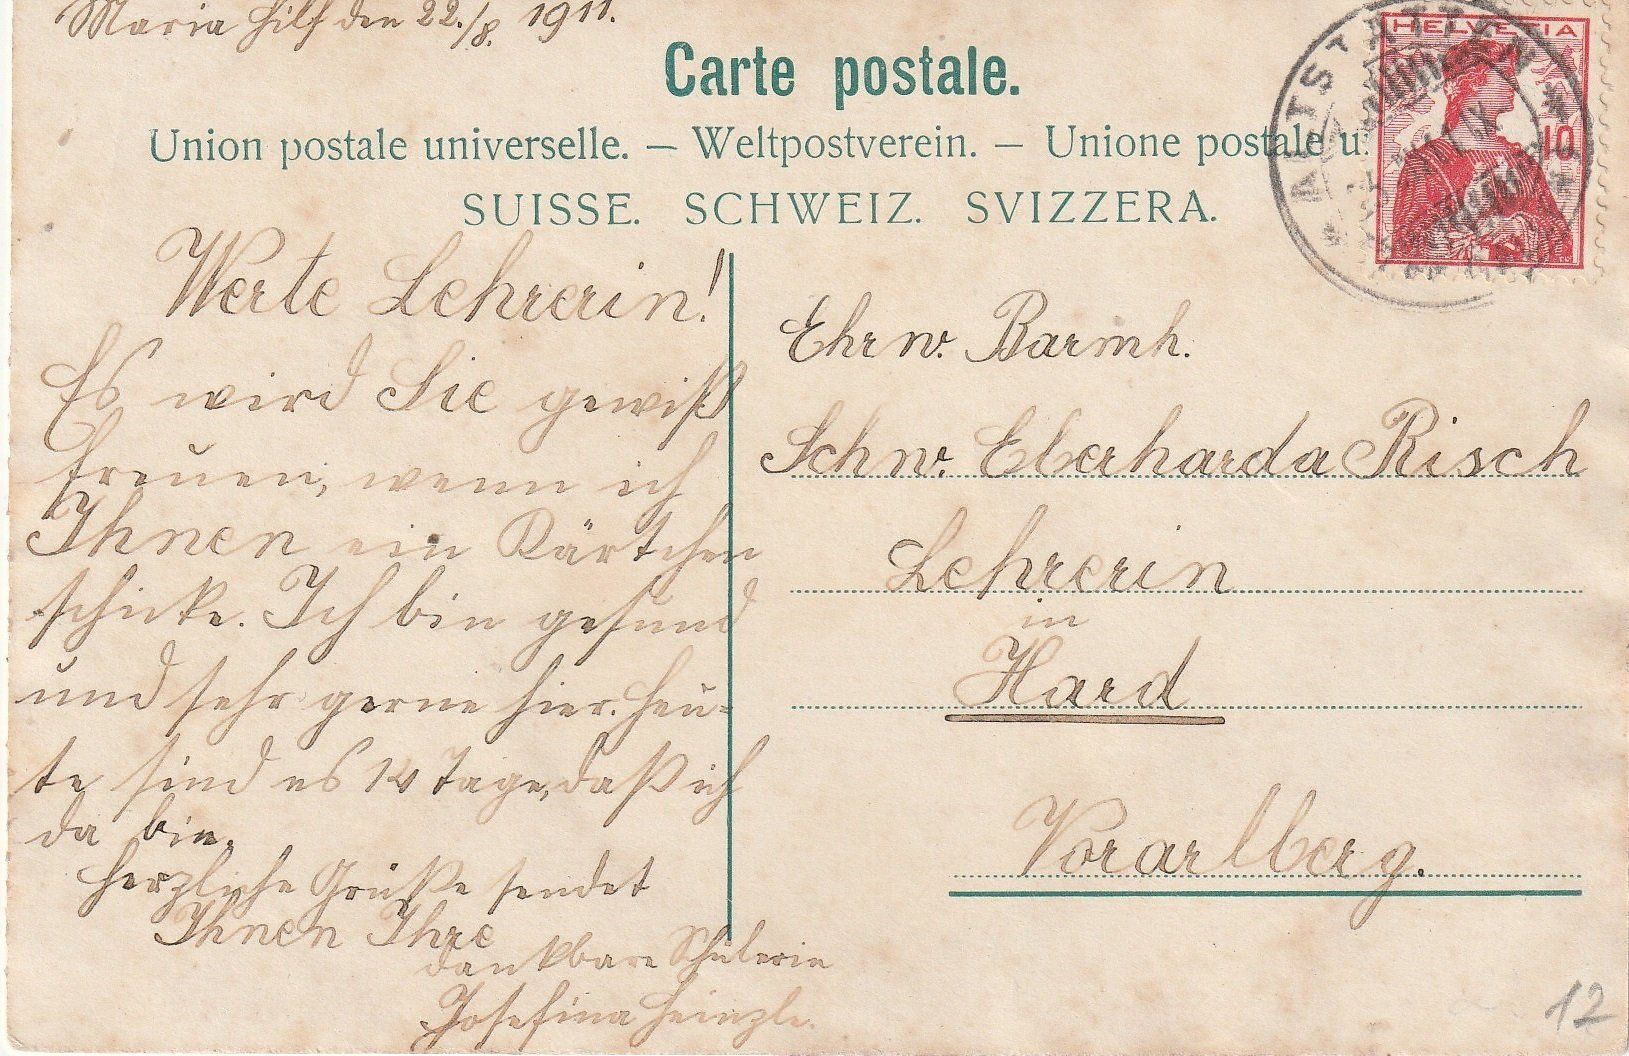 Maria Hilf den 22./8. 1911.
Carte postale.
Union postale universelle. — Weltpostverein. — Unione postale u
SUISSE. SCHWEIZ. SVIZZERA.
HELVETIA
10
ALTSTÄTTEN
Werte Lehrerin!
Es wird Sie gewiß
freuen, wenn ich
Ihnen ein Kärtchen
schicke. Ich bin gesund
und sehr gerne hier. Heu-
te sind es 14 Tage, daß ich
da bin.
Herzliche Grüße sendet
Ihnen Ihre
dankbare Schülerin
Josefina Heinzle.
Ehrw. Barmh.
Schw. Eberharda Risch
Lehrerin
in
Hard
Vorarlberg.
12